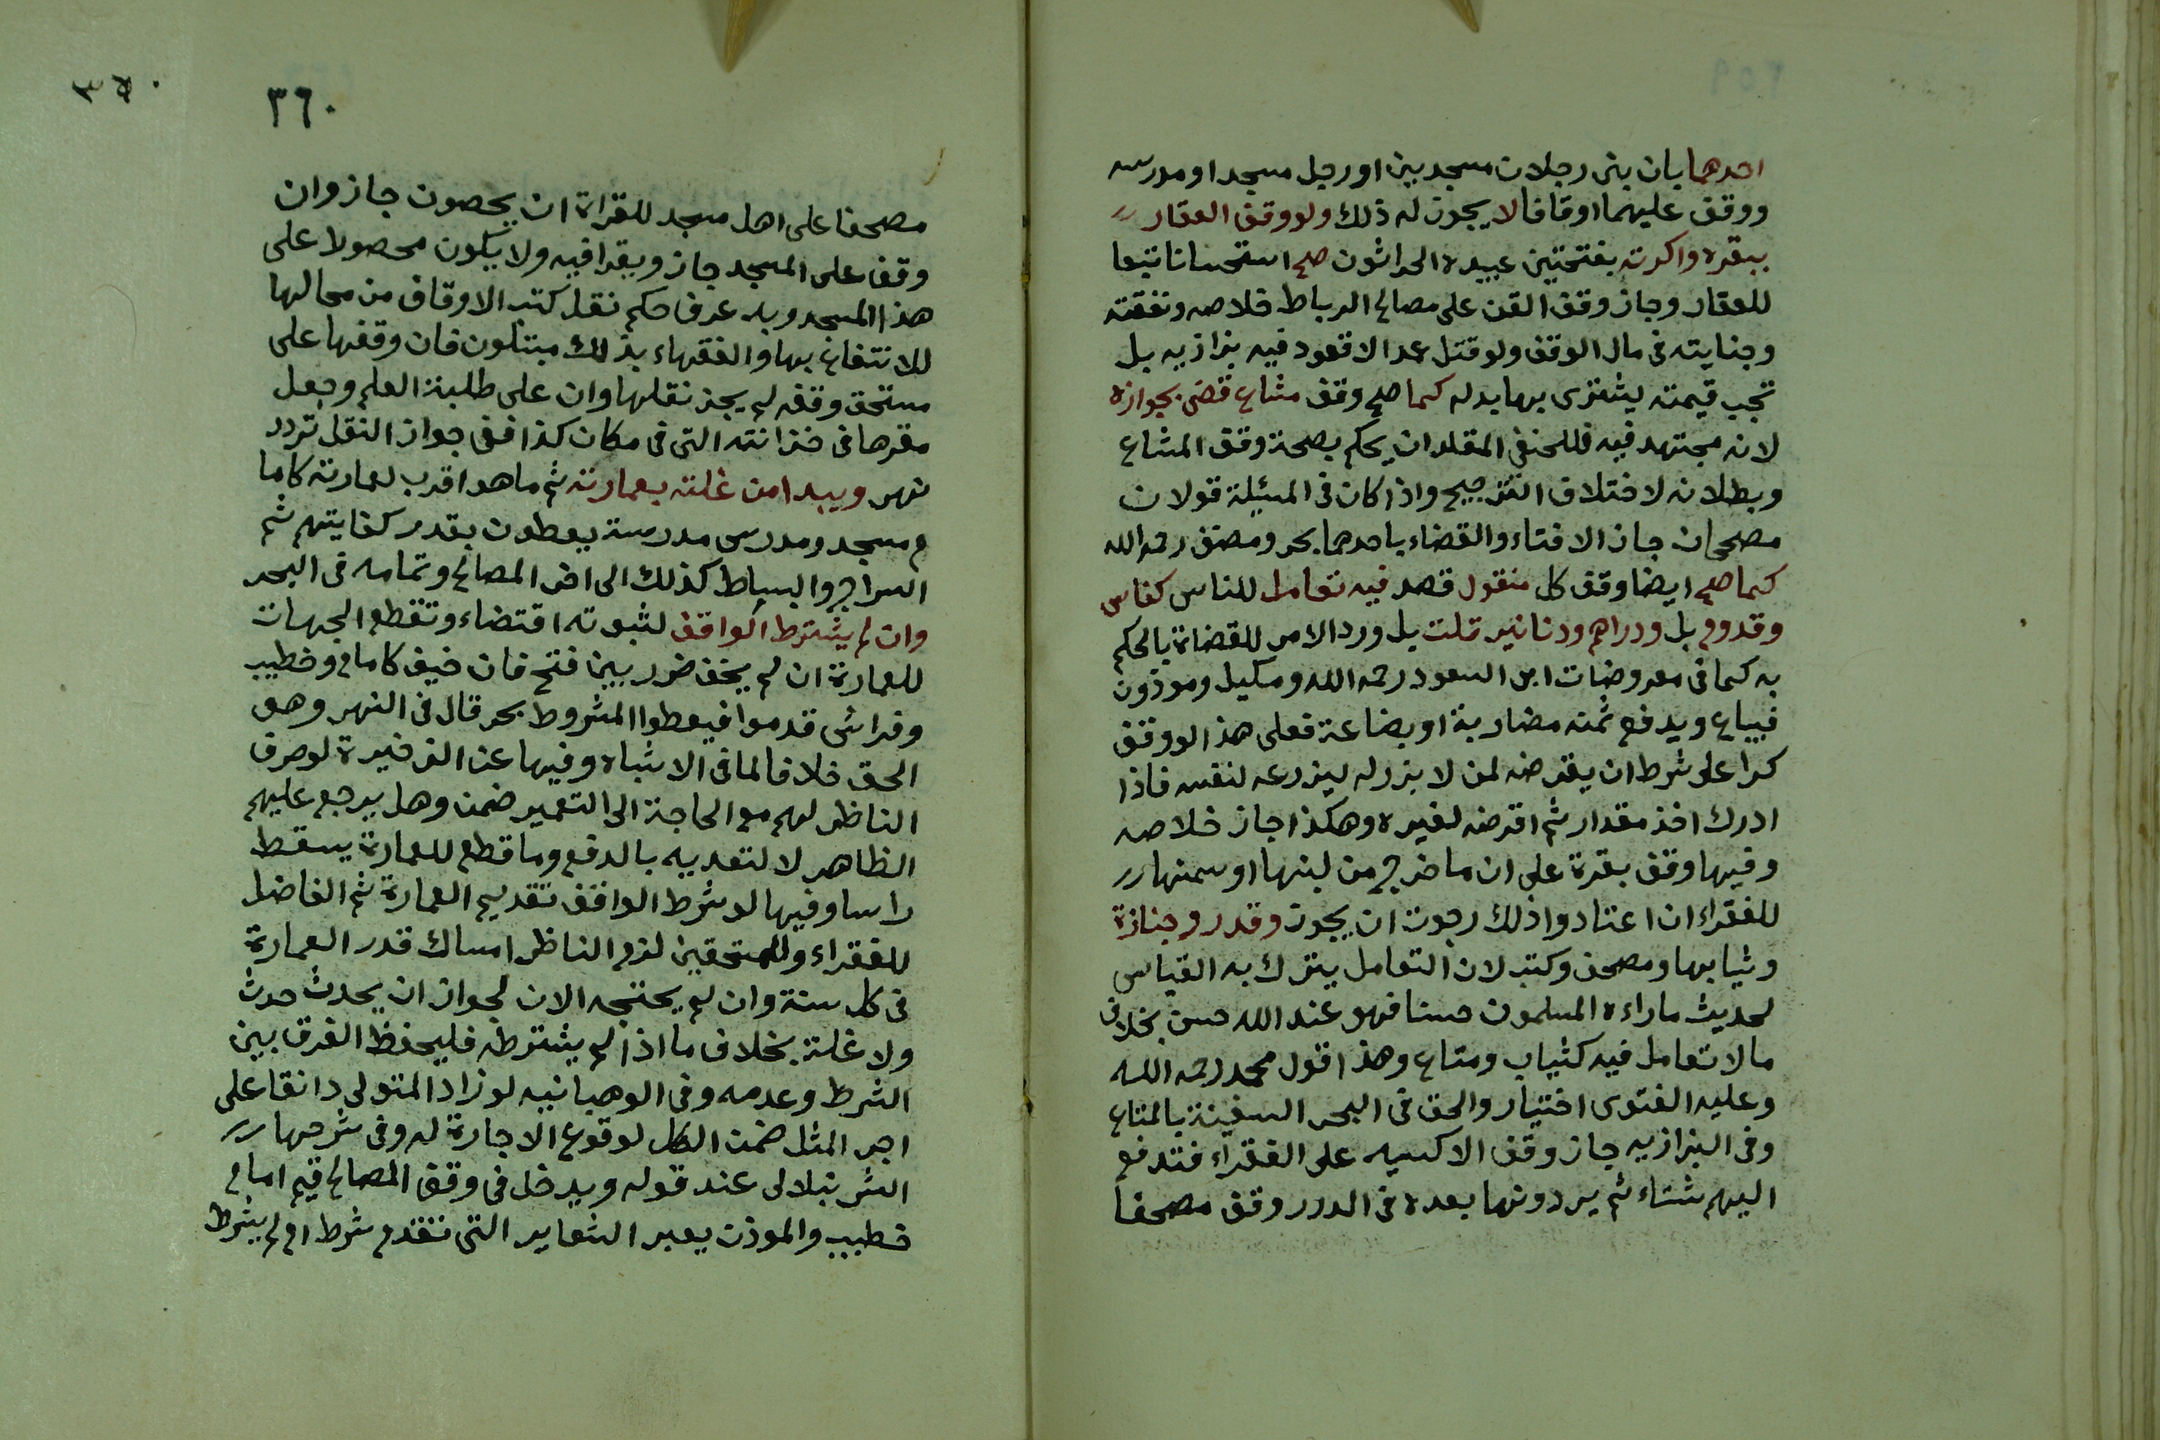 احدهما بان بنى رجلان مسجدين او رجل مسجدا ومدرسه
ووقف عليهما اوقافا لا يجوز له ذلك ولو وقف العقار
ببقره واكرته بفتحتين عبيده الحراثون صح استحسانا تبعا
للعقار وجاز وقف القن على مصالح الرباط خلاصه ونفقته
وجنايته فى مال الوقف ولو قتل عمدا لا قود فيه بزازيه بل
تجب قيمته ليشترى بها بدله كما صح وقف مشاع قضى بجوازه
لانه مجتهد فيه فللحنفى المقلد ان يحكم بصحة وقف المشاع
وبطلانه لاختلاف الترجيح واذا كان فى المسئلة قولان
مصححان جاز الافتاء والقضاء باحدهما بحر ومصنف رحمه الله
كما صح ايضا وقف كل منقول قصد فيه تعامل للناس كفاس
وقدوم بل ودراهم ودنانير قلت بل ورد الامر للقضاة بالحكم
به كما فى معروضات ابى السعود رحمه الله ومكيل وموزون
فيباع ويدفع ثمنه مضاربة او بضاعة فعلى هذا لو وقف
كرا على شرط ان يقرضه لمن لا بزر له ليزرعه لنفسه فاذا
ادرك اخذ مقدار ثم اقرضه لغيره وهكذا جاز خلاصه
وفيها وقف بقرة على ان ما خرج من لبنها او سمنها
للفقراء ان اعتادوا ذلك رجوت ان يجوز وقدر وجنازة
وثيابها ومصحف وكتب لان التعامل يترك به القياس
لحديث ما راءه المسلمون حسنا فهو عند الله حسن بخلاف
ما لا تعامل فيه كثياب ومتاع وهذا قول محمد رحمه الله
وعليه الفتوى اختيار والحق فى البحر السفينة بالمتاع
وفى البزازيه جاز وقف الاكسيه على الفقراء فتدفع
اليهم شتاء ثم يردونها بعده فى الدرر وقف مصحفا
٣٦٠
٣٦٠
مصحفا على اهل مسجد للقراة ان يحصون جاز وان
وقف على المسجد جاز ويقرا فيه ولا يكون محصولا على
هذا المسجد وبه عرف حكم نقل كتب الاوقاف من محالها
للانتفاع بها والفقهاء بذلك مبتلون فان وقفها على
مستحق وقفه لم يجز نقلها وان على طلبة العلم وجعل
مقرها فى خزانته التى فى مكان كذا ففى جواز النقل تردد
نهر ويبدا من غلته بعمارته ثم ما هو اقرب لعمارته كاما
م مسجد ومدرس مدرسة يعطون بقدر كفايتهم ثم
السراج والبساط كذلك الى اخر المصالح وتمامه فى البحر
وان لم يشترط الواقف لثبوته اقتضاء وتقطع الجهات
للعمارة ان لم يخف ضرر بين فتح فان خيف كامام وخطيب
وفراش قدموا فيعطوا المشروط بحر قال فى النهر وهو
الحق خلافا لما فى الاشباه وفيها عن الذخيرة لو صرف
الناظر لهم مع الحاجة الى التعمير ضمن وهل يرجع عليهم
الظاهر لا لتعديه بالدفع وما قطع للعمارة يسقط
راسا وفيها لو شرط الواقف تقديم العمارة ثم الفاضل
للفقراء وللمستحقين لزم الناظر امساك قدر العمارة
فى كل سنة وان لم يحتجه الان لجواز ان يحدث حدث
ولا غلة بخلاف ما اذا لم يشترطه فليحفظ الفرق بين
الشرط وعدمه وفى الوهبانيه لو زاد المتولى دانقا على
اجر المثل ضمن الكل لوقوع الاجارة له وفى شرحها
الشرنبلالى عند قوله ويدخل فى وقف المصالح قيم امام
خطيب والموذن يعبر الشعاير التى تقدم شرط ام لم يشرط